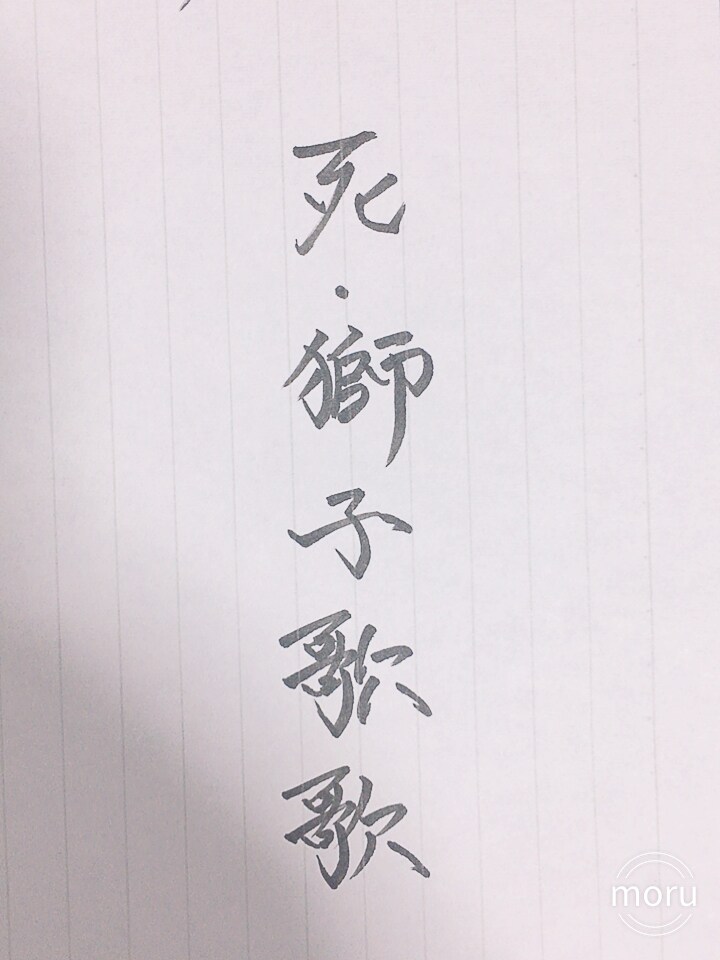 死·獅子歌歌
moru